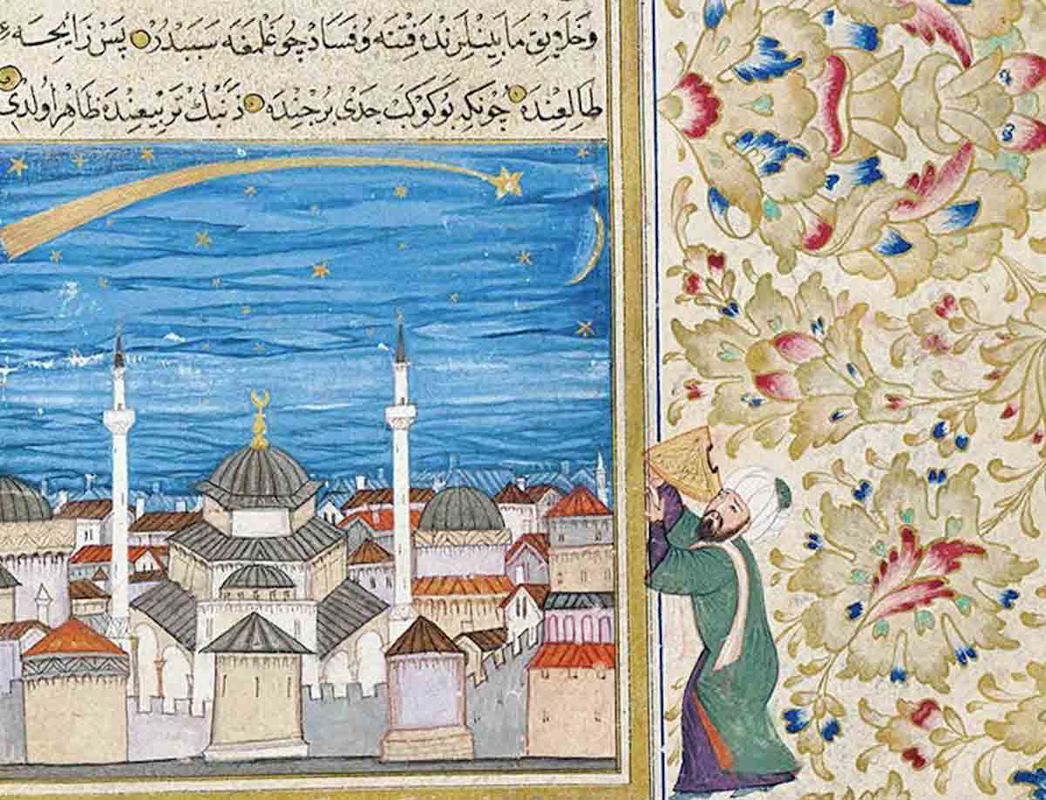 وخلایق مابینلرنده فتنه وفساد چوغلمغه سببدر پس زایجه
طالعنده چونکه بوکوکب جدی برجنده ذنبك تربیعنده ظاهر اولدی